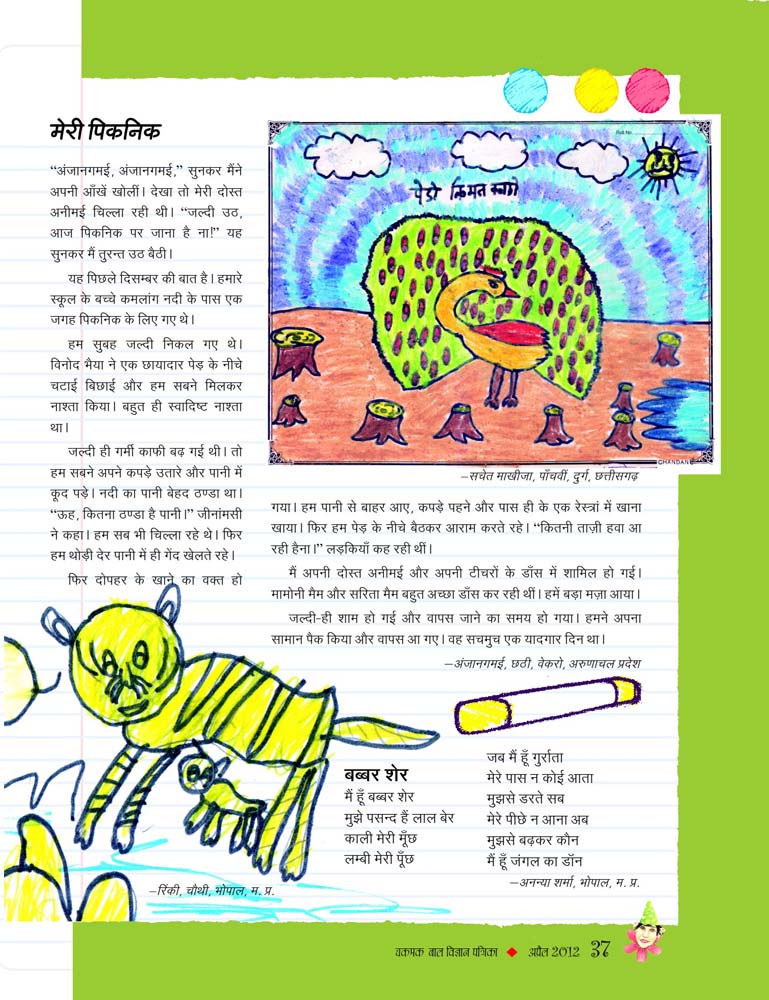 मेरी पिकनिक
“अंजानगमई, अंजानगमई,” सुनकर मैंने
अपनी आँखें खोलीं। देखा तो मेरी दोस्त
अनीमई चिल्ला रही थी। “जल्दी उठ,
आज पिकनिक पर जाना है ना!” यह
सुनकर मैं तुरन्त उठ बैठी।
यह पिछले दिसम्बर की बात है। हमारे
स्कूल के बच्चे कमलांग नदी के पास एक
जगह पिकनिक के लिए गए थे।
हम सुबह जल्दी निकल गए थे।
विनोद भैया ने एक छायादार पेड़ के नीचे
चटाई बिछाई और हम सबने मिलकर
नाश्ता किया। बहुत ही स्वादिष्ट नाश्ता
था।
जल्दी ही गर्मी काफी बढ़ गई थी। तो
हम सबने अपने कपड़े उतारे और पानी में
कूद पड़े। नदी का पानी बेहद ठण्डा था।
“ऊह, कितना ठण्डा है पानी।” जीनांमसी
ने कहा। हम सब भी चिल्ला रहे थे। फिर
हम थोड़ी देर पानी में ही गेंद खेलते रहे।
फिर दोपहर के खाने का वक्त हो
Roll No.
पेड़ो
CHANDAN
–सचेत माखीजा, पाँचवीं, दुर्ग, छत्तीसगढ़
गया। हम पानी से बाहर आए, कपड़े पहने और पास ही के एक रेस्त्रां में खाना
खाया। फिर हम पेड़ के नीचे बैठकर आराम करते रहे। “कितनी ताज़ी हवा आ
रही हैना।” लड़कियाँ कह रही थीं।
मैं अपनी दोस्त अनीमई और अपनी टीचरों के डाँस में शामिल हो गई।
मामोनी मैम और सरिता मैम बहुत अच्छा डाँस कर रही थीं। हमें बड़ा मज़ा आया।
जल्दी-ही शाम हो गई और वापस जाने का समय हो गया। हमने अपना
सामान पैक किया और वापस आ गए। वह सचमुच एक यादगार दिन था।
–अंजानगमई, छठी, वेकरो, अरुणाचल प्रदेश
बब्बर शेर
मैं हूँ बब्बर शेर
मुझे पसन्द हैं लाल बेर
काली मेरी मूँछ
लम्बी मेरी पूँछ
जब मैं हूँ गुर्राता
मेरे पास न कोई आता
मुझसे डरते सब
मेरे पीछे न आना अब
मुझसे बढ़कर कौन
मैं हूँ जंगल का डॉन
–अनन्या शर्मा, भोपाल, म. प्र.
–रिंकी, चौथी, भोपाल, म. प्र.
चकमक बाल विज्ञान पत्रिका ◆ अप्रैल 2012 37